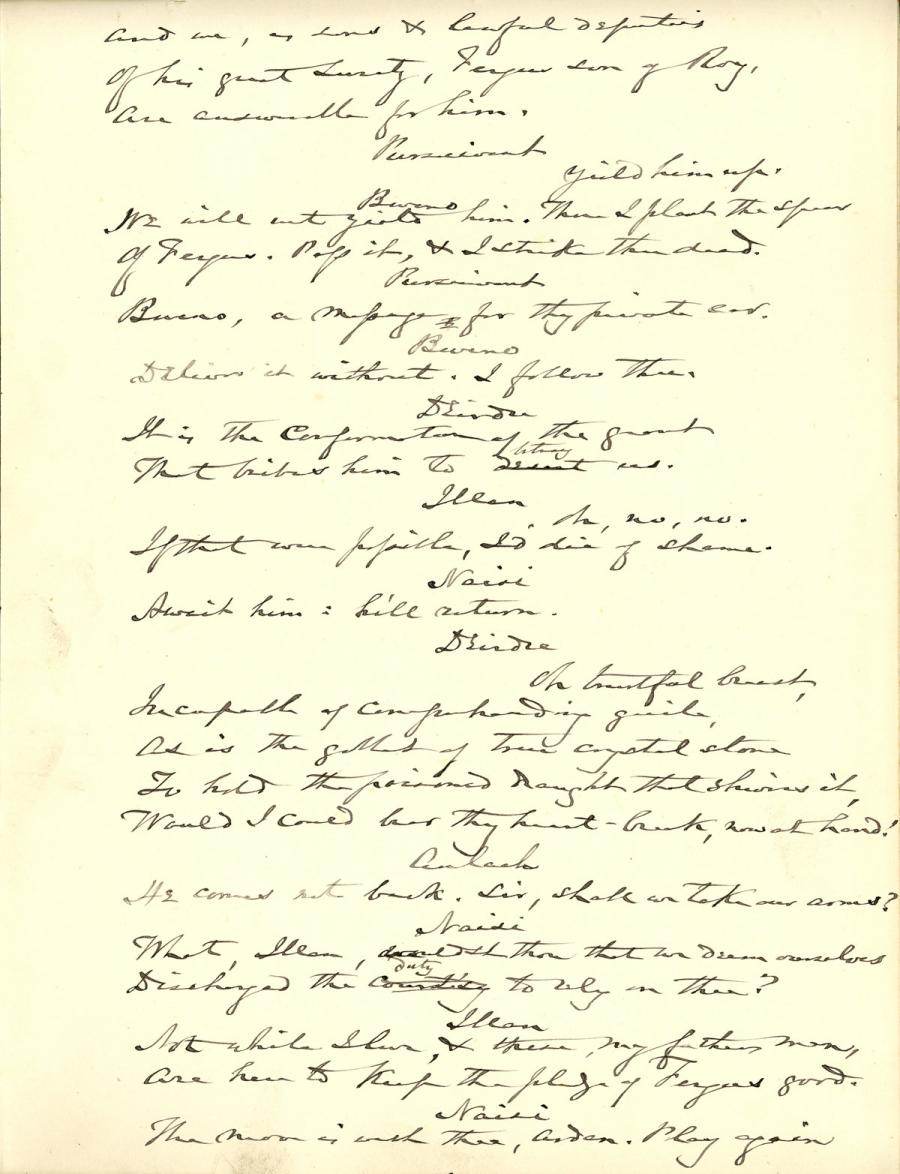 and we, as sons & lawful deputies
Of his great Surety, Fergus son of Roy,
Are answerable for him.
Pursuivant
Yield him up.
Buino
We will not yield him. Thus I plant the spear
Of Fergus. Pass it, & I strike thee dead.
Pursuivant
Buino, a message for thy private ear.
Buino
Deliver it without. I follow thee.
Deirdre
It is the Confirmation of the grant
That bribes him to desert betray us.
Illan
Oh, no, no.
If that were possible, I'd die of shame.
Naisi
Await him: he'll return.
Deirdre
Oh trustful breast,
Incapable of comprehending guile,
As is the goblet of true crystal stone
To hold the poisoned draught that shivers it,
Would I could bear thy heart-break, now at hand!
Ardan
He comes not back. Sir, shall we take our arms?
Naisi
What, Illan, wouldst thou that we deem ourselves
Discharged the courtesy duty to rely on thee?
Illan
Not while I live, & these, my father's men,
Are here to keep the pledge of Fergus good.
Naisi
The move is with thee, Ardan. Play again